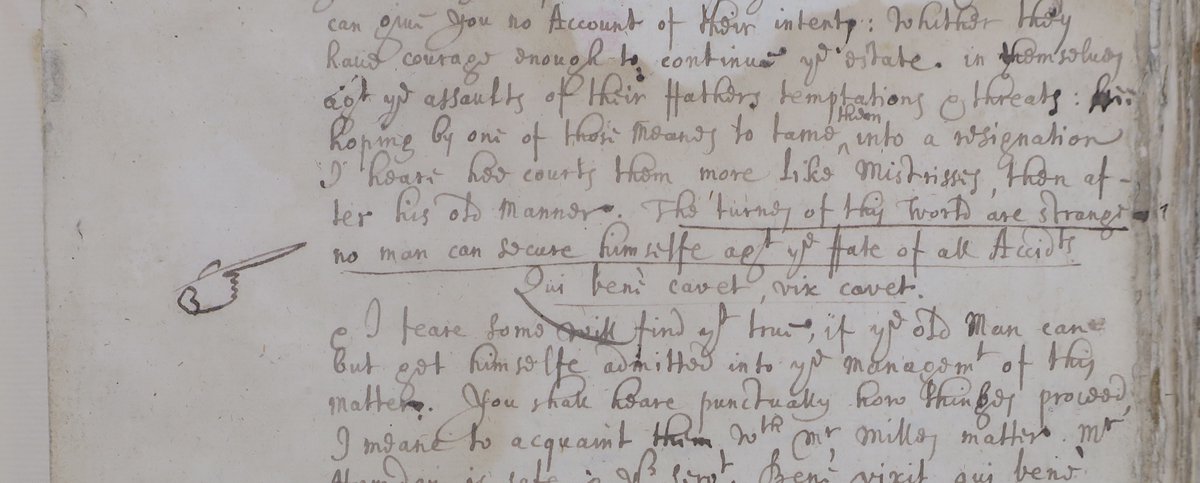 can give you no Account of their intent: Whither they
have courage enough to continue ye estate. in themselves
agt ye assaults of their ffathers temptations & threats: hee
hoping by one of those Meanes to tame them into a resignation
I heare hee courts them more like Mistrisses, then af-
ter his old Manner. The turnes of this World are strange
no man can secure himselfe agt ye ffate of all Accidts
Qui benè cavet, vix cavet.
& I feare some will find yt true, if ye old Man cane
but get himselfe admitted into ye managemt of this
matter. You shall heare punctually how thinges proceed,
I meane to acquaint them wth Mr Milles matter. Mr
is safe & yr servt. Benè vixit qui benè